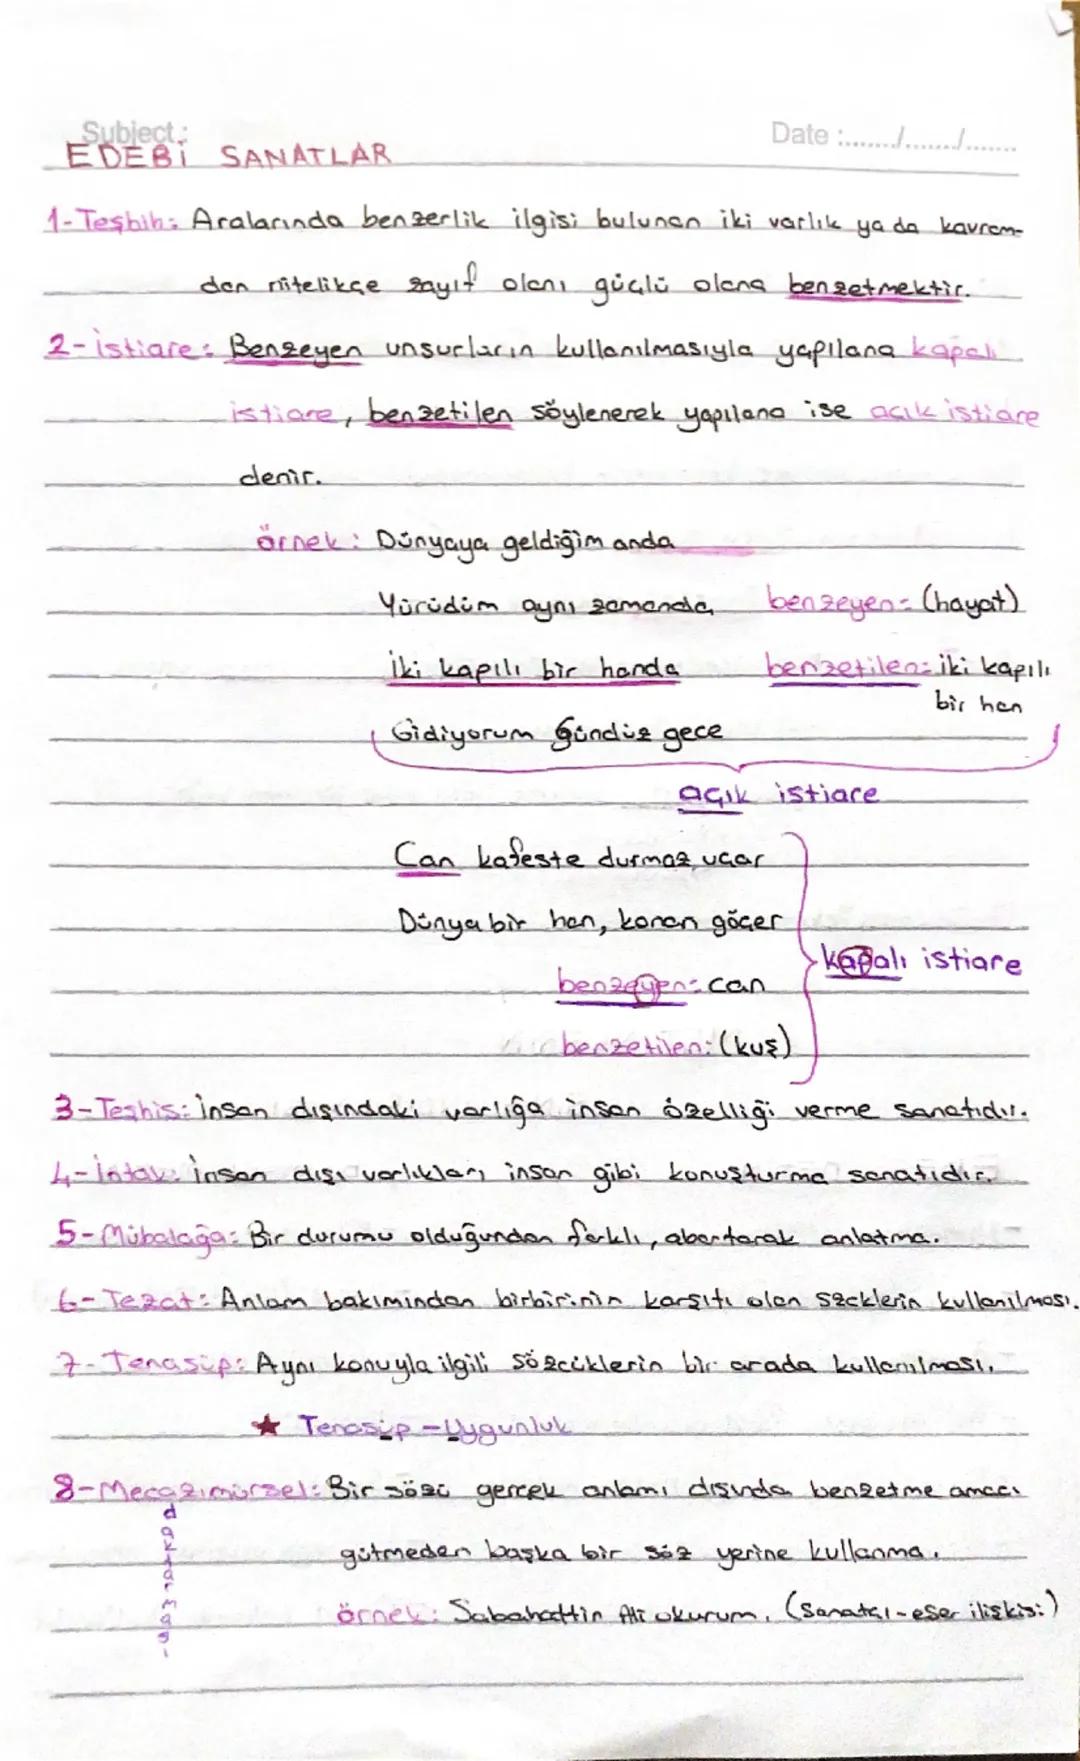 Subject.:
Date :......../......../........
EDEBİ SANATLAR
1-Teşbih: Aralarında benzerlik ilgisi bulunan iki varlık ya da kavram-
dan nitelikçe zayıf olanı güçlü olana benzetmektir.
2-istiare: Benzeyen unsurların kullanılmasıyla yapılana kapalı
istiare, benzetilen söylenerek yapılana ise açık istiare
denir.
örnek: Dünyaya geldiğim anda
Yürüdüm aynı zamanda benzeyen: (hayat)
İki kapılı bir handa benzetilen: iki kapılı
bir han
Gidiyorum Gündüz gece
açık istiare
Can kafeste durmaz uçar
Dünya bir han, konan göçer
kapalı istiare
benzeyen: can
benzetilen: (kuş)
3-Teşhis: İnsan dışındaki varlığa insan özelliği verme sanatıdır.
4-İntak: İnsan dışı varlıkları insan gibi konuşturma sanatıdır.
5-Mübalağa: Bir durumu olduğundan farklı, abartarak anlatma.
6-Tezat: Anlam bakımından birbirinin karşıtı olan szcklerin kullanılması.
7-Tenasüp: Aynı konuyla ilgili sözcüklerin bir arada kullanılması.
★ Tenasüp - Uygunluk
8-Mecazımürsel: Bir sözü gerçek anlamı dışında benzetme amacı
gütmeden başka bir söz yerine kullanma.
örnek: Sabahattin Ali okurum. (Sanatçı-eser ilişkisi)